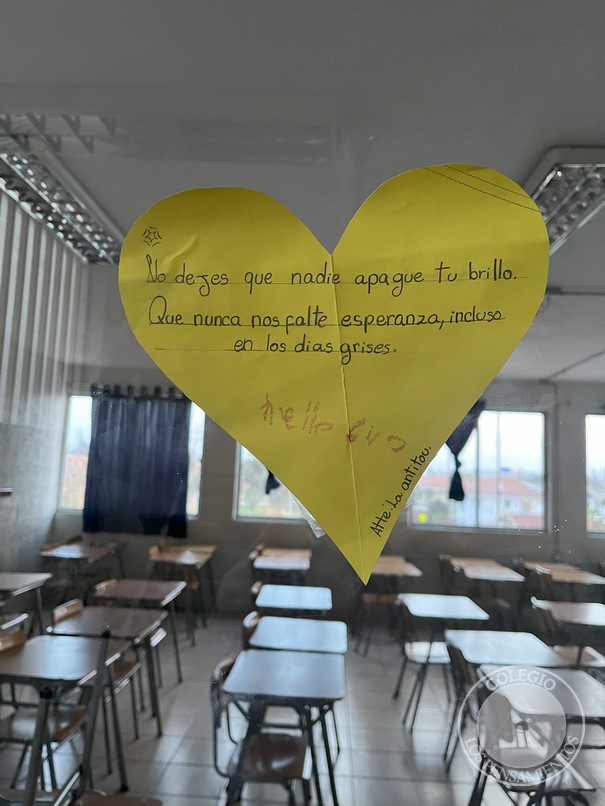 No dejes que nadie apague tu brillo.
Que nunca nos falte esperanza, incluso
en los dias grises.
Atte: La antitou.
COLEGIO
LOS PENSAMIENTOS